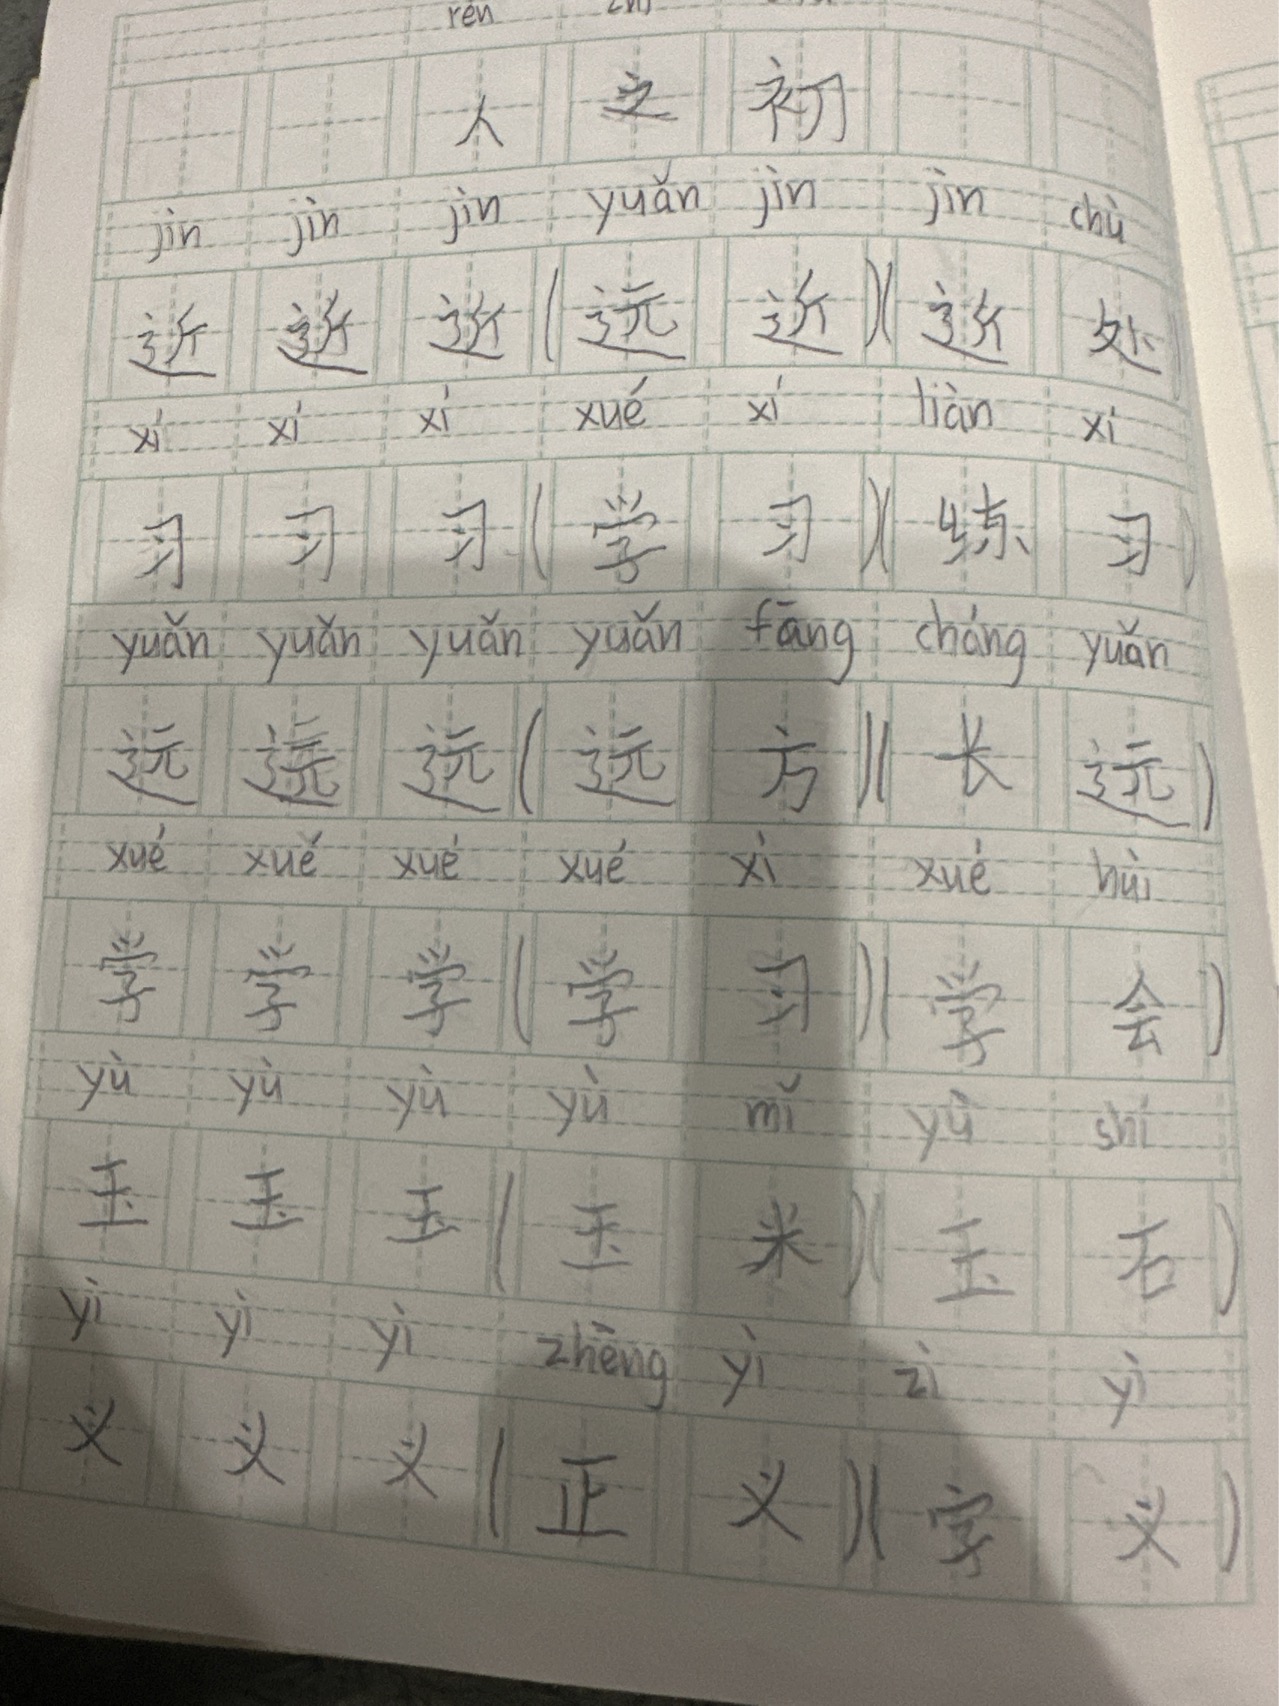 rén zhī
人 之 初
jìn jìn jìn yuǎn jìn jìn chù
近 近 近 (远 近)(近 处)
xí xí xí xué xí liàn xí
习 习 习 (学 习)(练 习)
yuǎn yuǎn yuǎn yuǎn fāng cháng yuǎn
远 远 远 (远 方)(长 远)
xué xué xué xué xì xué hùi
学 学 学 (学 习)(学 会)
yù yù yù yù mǐ yù shí
玉 玉 玉 (玉 米)(玉 石)
yì yì yì zhēng yì zì yì
义 义 义 (正 义)(字 义)